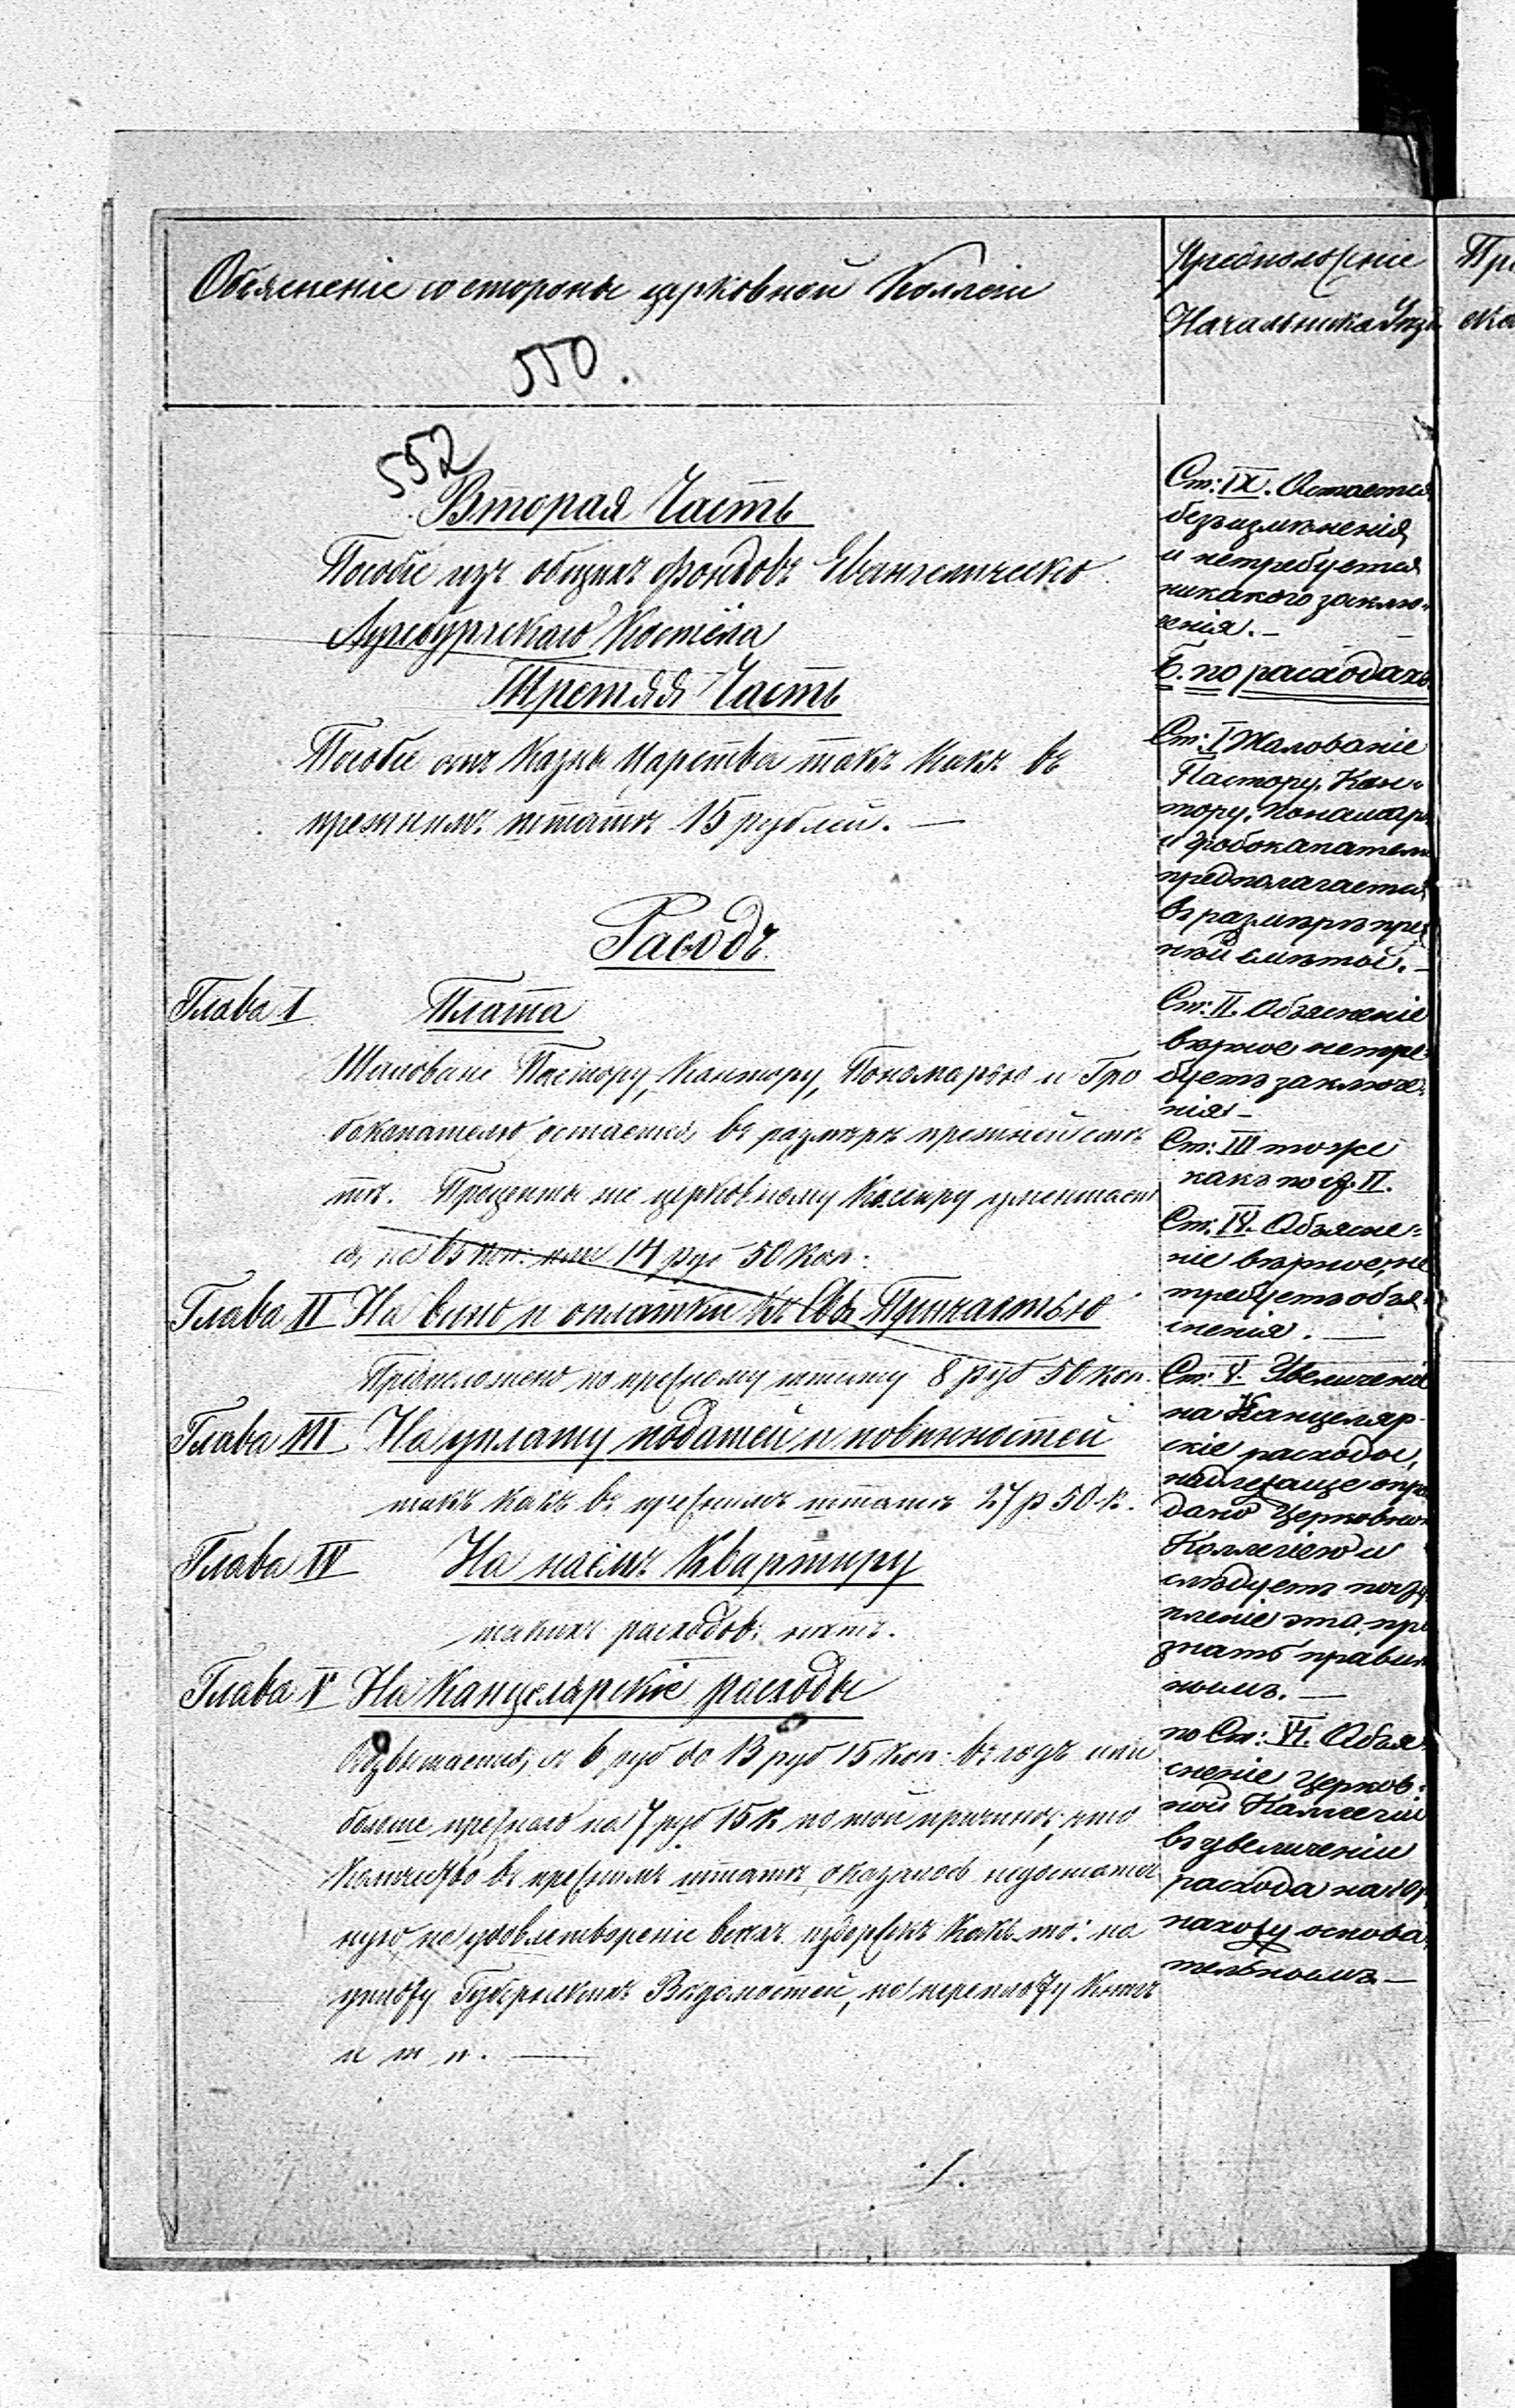 Объясненіе со стороны церковной Коллегіи
550.
552
Вторая Часть
Пособіе изъ общихъ фондовъ Евангелическо
Аугсбургскаго Костёла
Третяя Часть
Пособіе отъ Казны Царства такъ какъ въ
прежнимъ штатѣ 15 рублей. —
Расходъ
Глава I Плата
Жалованіе Пастору, Кантору, Пономарью и Гро
бокопателю остается, въ размѣрѣ прежней смѣ
ты. Проценты же церковному Кассиру уменшает
ся, на 14 руб 50 коп.
Глава II На вино и оплатки къ Св. Причастью
Предположено по прежному штату 8 руб 50 коп.
Глава III На уплату податей и повинностей
такъ какъ въ прежнимъ штатѣ 27 р 50 к.
Глава IV На наёмъ Квартиру
такихъ расходовъ нѣтъ.
Глава V На Канцелярскіе расходы
Возвышается, съ 6 руб до 13 руб 15 коп. въ годъ или
больше прежнаго на 7 руб 15 к по той причинѣ, что
Количество въ прежнимъ штатѣ оказалось недостаточ
ную на удовлетвореніе всѣхъ издержекъ какъ-то: на
уплату Губернскихъ Вѣдомостей, по переплоту Книгъ
и т п. —
./.
Предположеніе
Начальника Уѣз
Ст: IX. Остается
безъ измѣненія
и нетребуется
никакого заклю-
ченія. —
Б. по расходахъ
Ст: I Жалованіе
Пастору, Кан-
тору, Пономар
и гробокапателю
предполагается
въ размѣрѣ преж
ней смѣтой. —
Ст: II. Объясненіе
вѣрное нетре-
буетъ заключе-
нія —
Ст: III тоже
какъ по ст. II.
Ст: IV. Объясне-
ніе вѣрное, не
требуетъ объя-
сненія. —
Ст: V. Увеличеніе
на Канцеляр-
скіе расходы,
надлежаще опра
дано Церковною
Коллегіею и
слѣдуетъ
при
знать правиль
нымъ. —
по Ст: VI. Объя-
сненіе Церков-
ной Коллегіи
въ увеличеніи
расхода на 10 р
нахожу основа-
тельнымъ —